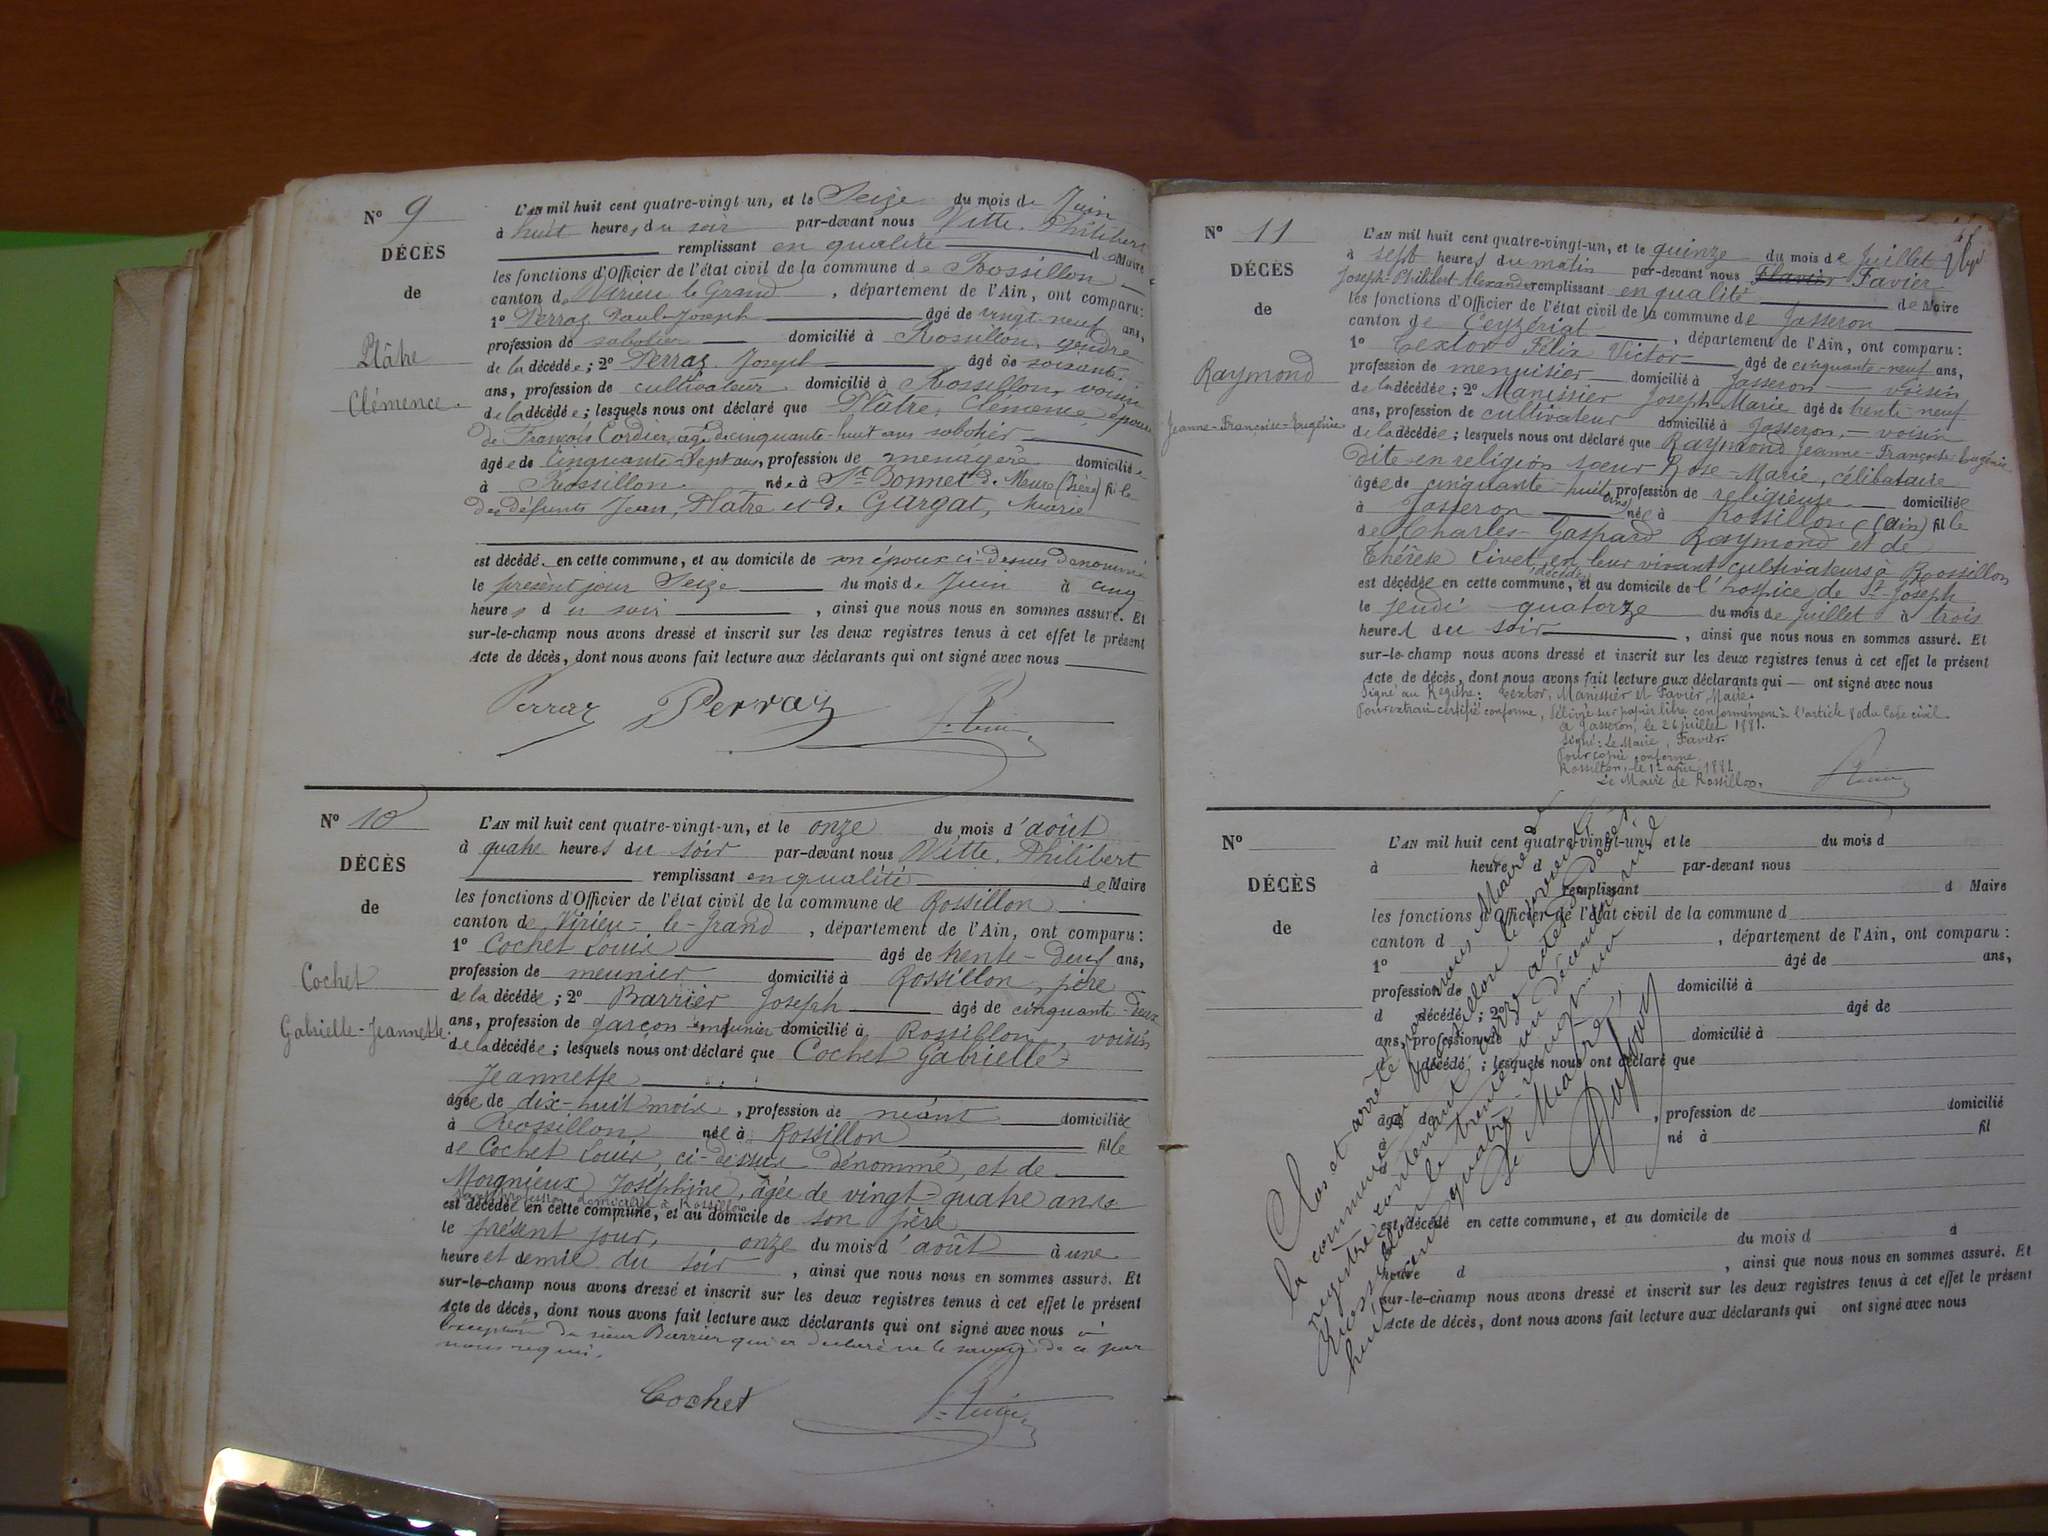 N° 9
DÉCÈS
de
Plâtre
Clémence.
L'AN mil huit cent quatre-vingt-un, et le Seize du mois de Juin
à huit heures du soir par-devant nous Vitte, Philibert
remplissant en qualité de Maire
les fonctions d'Officier de l'état civil de la commune de Rossillon
canton de Virieu le Grand, département de l'Ain, ont comparu:
1° Perraz Paul-Joseph âgé de vingt-neuf ans,
profession de sabotier domicilié à Rossillon, gendre
de la décédée; 2° Perraz Joseph âgé de soixante
ans, profession de cultivateur domicilié à Rossillon, voisin
de la décédée; lesquels nous ont déclaré que Plâtre, Clémence, épouse
de François Cordier, âgé de cinquante-huit ans sabotier
âgée de Cinquante-Sept ans, profession de menagère domiciliée
à Rossillon née à St Bonnet de Mure (Isère) fille
des défunts Jean, Plâtre et de Gargat, Marie
est décédé en cette commune, et au domicile de son époux ci-dessus dénommé
le présent jour Seize du mois de Juin à cinq
heures du soir, ainsi que nous nous en sommes assuré. Et
sur-le-champ nous avons dressé et inscrit sur les deux registres tenus à cet effet le présent
Acte de décès, dont nous avons fait lecture aux déclarants qui ont signé avec nous
Perraz Perraz
N° 10
DÉCÈS
de
Cochet
Gabrielle-Jeannette
L'AN mil huit cent quatre-vingt-un, et le onze du mois d'août
à quatre heures du soir par-devant nous Vitte, Philibert
remplissant en qualité de Maire
les fonctions d'Officier de l'état civil de la commune de Rossillon
canton de Virieu-le-Grand, département de l'Ain, ont comparu:
1° Cochet Louis âgé de trente-deux ans,
profession de meunier domicilié à Rossillon, père
de la décédée; 2° Barrier Joseph âgé de cinquante-deux
ans, profession de garçon-meunier domicilié à Rossillon, voisin
de la décédée; lesquels nous ont déclaré que Cochet Gabrielle-
Jeannette
âgée de dix-huit mois, profession de néant domiciliée
à Rossillon née à Rossillon fille
de Cochet Louis, ci-dessus dénommé, et de
Moignieux Joséphine, âgée de vingt-quatre ans
sans profession domiciliée à Rossillon
est décédée en cette commune, et au domicile de son père
le présent jour, onze du mois d'août à une
heure et demie du soir, ainsi que nous nous en sommes assuré. Et
sur-le-champ nous avons dressé et inscrit sur les deux registres tenus à cet effet le présent
Acte de décès, dont nous avons fait lecture aux déclarants qui ont signé avec nous à
l'exception du sieur Barrier qui a déclaré ne le savoir de ce par
nous requis.
Cochet
N° 11
DÉCÈS
de
Raymond
Jeanne-Françoise-Eugénie
L'AN mil huit cent quatre-vingt-un, et le quinze du mois de Juillet
à sept heures du matin par-devant nous Flavier Favier
Joseph Philibert Alexandre remplissant en qualité de Maire
les fonctions d'Officier de l'état civil de la commune de Jasseron
canton de Ceyzériat, département de l'Ain, ont comparu:
1° Textor Félix Victor âgé de cinquante-neuf ans,
profession de menuisier domicilié à Jasseron voisin
de la décédée; 2° Manissier Joseph-Marie âgé de trente-neuf
ans, profession de cultivateur domicilié à Jasseron, voisin
de la décédée; lesquels nous ont déclaré que Raymond Jeanne-Françoise-Eugénie
dite en religion sœur Rose-Marie, célibataire
âgée de cinquante-huit ans, profession de religieuse domiciliée
à Jasseron née à Rossillon (Ain) fille
de Charles-Gaspard Raymond et de
Thérèse Livet en leur vivant cultivateurs à Rossillon
décédés
est décédée en cette commune, et au domicile de l'hospice de St-Joseph
le jeudi quatorze du mois de juillet à trois
heures du soir, ainsi que nous nous en sommes assuré. Et
sur-le-champ nous avons dressé et inscrit sur les deux registres tenus à cet effet le présent
Acte de décès, dont nous avons fait lecture aux déclarants qui ont signé avec nous
Signé au Registre: Textor, Manissier et Favier Maire.
Pour extrait certifié conforme, délivré sur papier libre conformément à l'article 80 du Code civil.
à Jasseron, le 26 juillet 1881.
Signé: Le Maire, Favier.
Pour copie conforme
Rossillon, le 1er août 1881
Le Maire de Rossillon,
N°
DÉCÈS
de
L'AN mil huit cent quatre-vingt-un, et le du mois d
à heure d par-devant nous
remplissant d Maire
les fonctions d'Officier de l'état civil de la commune d
canton d , département de l'Ain, ont comparu:
1° âgé de ans,
profession de domicilié à
d décédé; 2° âgé de
ans, profession de domicilié à
d décédé; lesquels nous ont déclaré que
âgé de , profession de domicilié
à né à fil
est décédé en cette commune, et au domicile de
le du mois d à
heure d , ainsi que nous nous en sommes assuré. Et
sur-le-champ nous avons dressé et inscrit sur les deux registres tenus à cet effet le présent
Acte de décès, dont nous avons fait lecture aux déclarants qui ont signé avec nous
Clos et arrêté par nous Maire de
la commune de Rossillon le
registre contenant onze actes de Décès
Rossillon le trente un décembre mil
huit cent quatre-vingt-un
Le Maire,